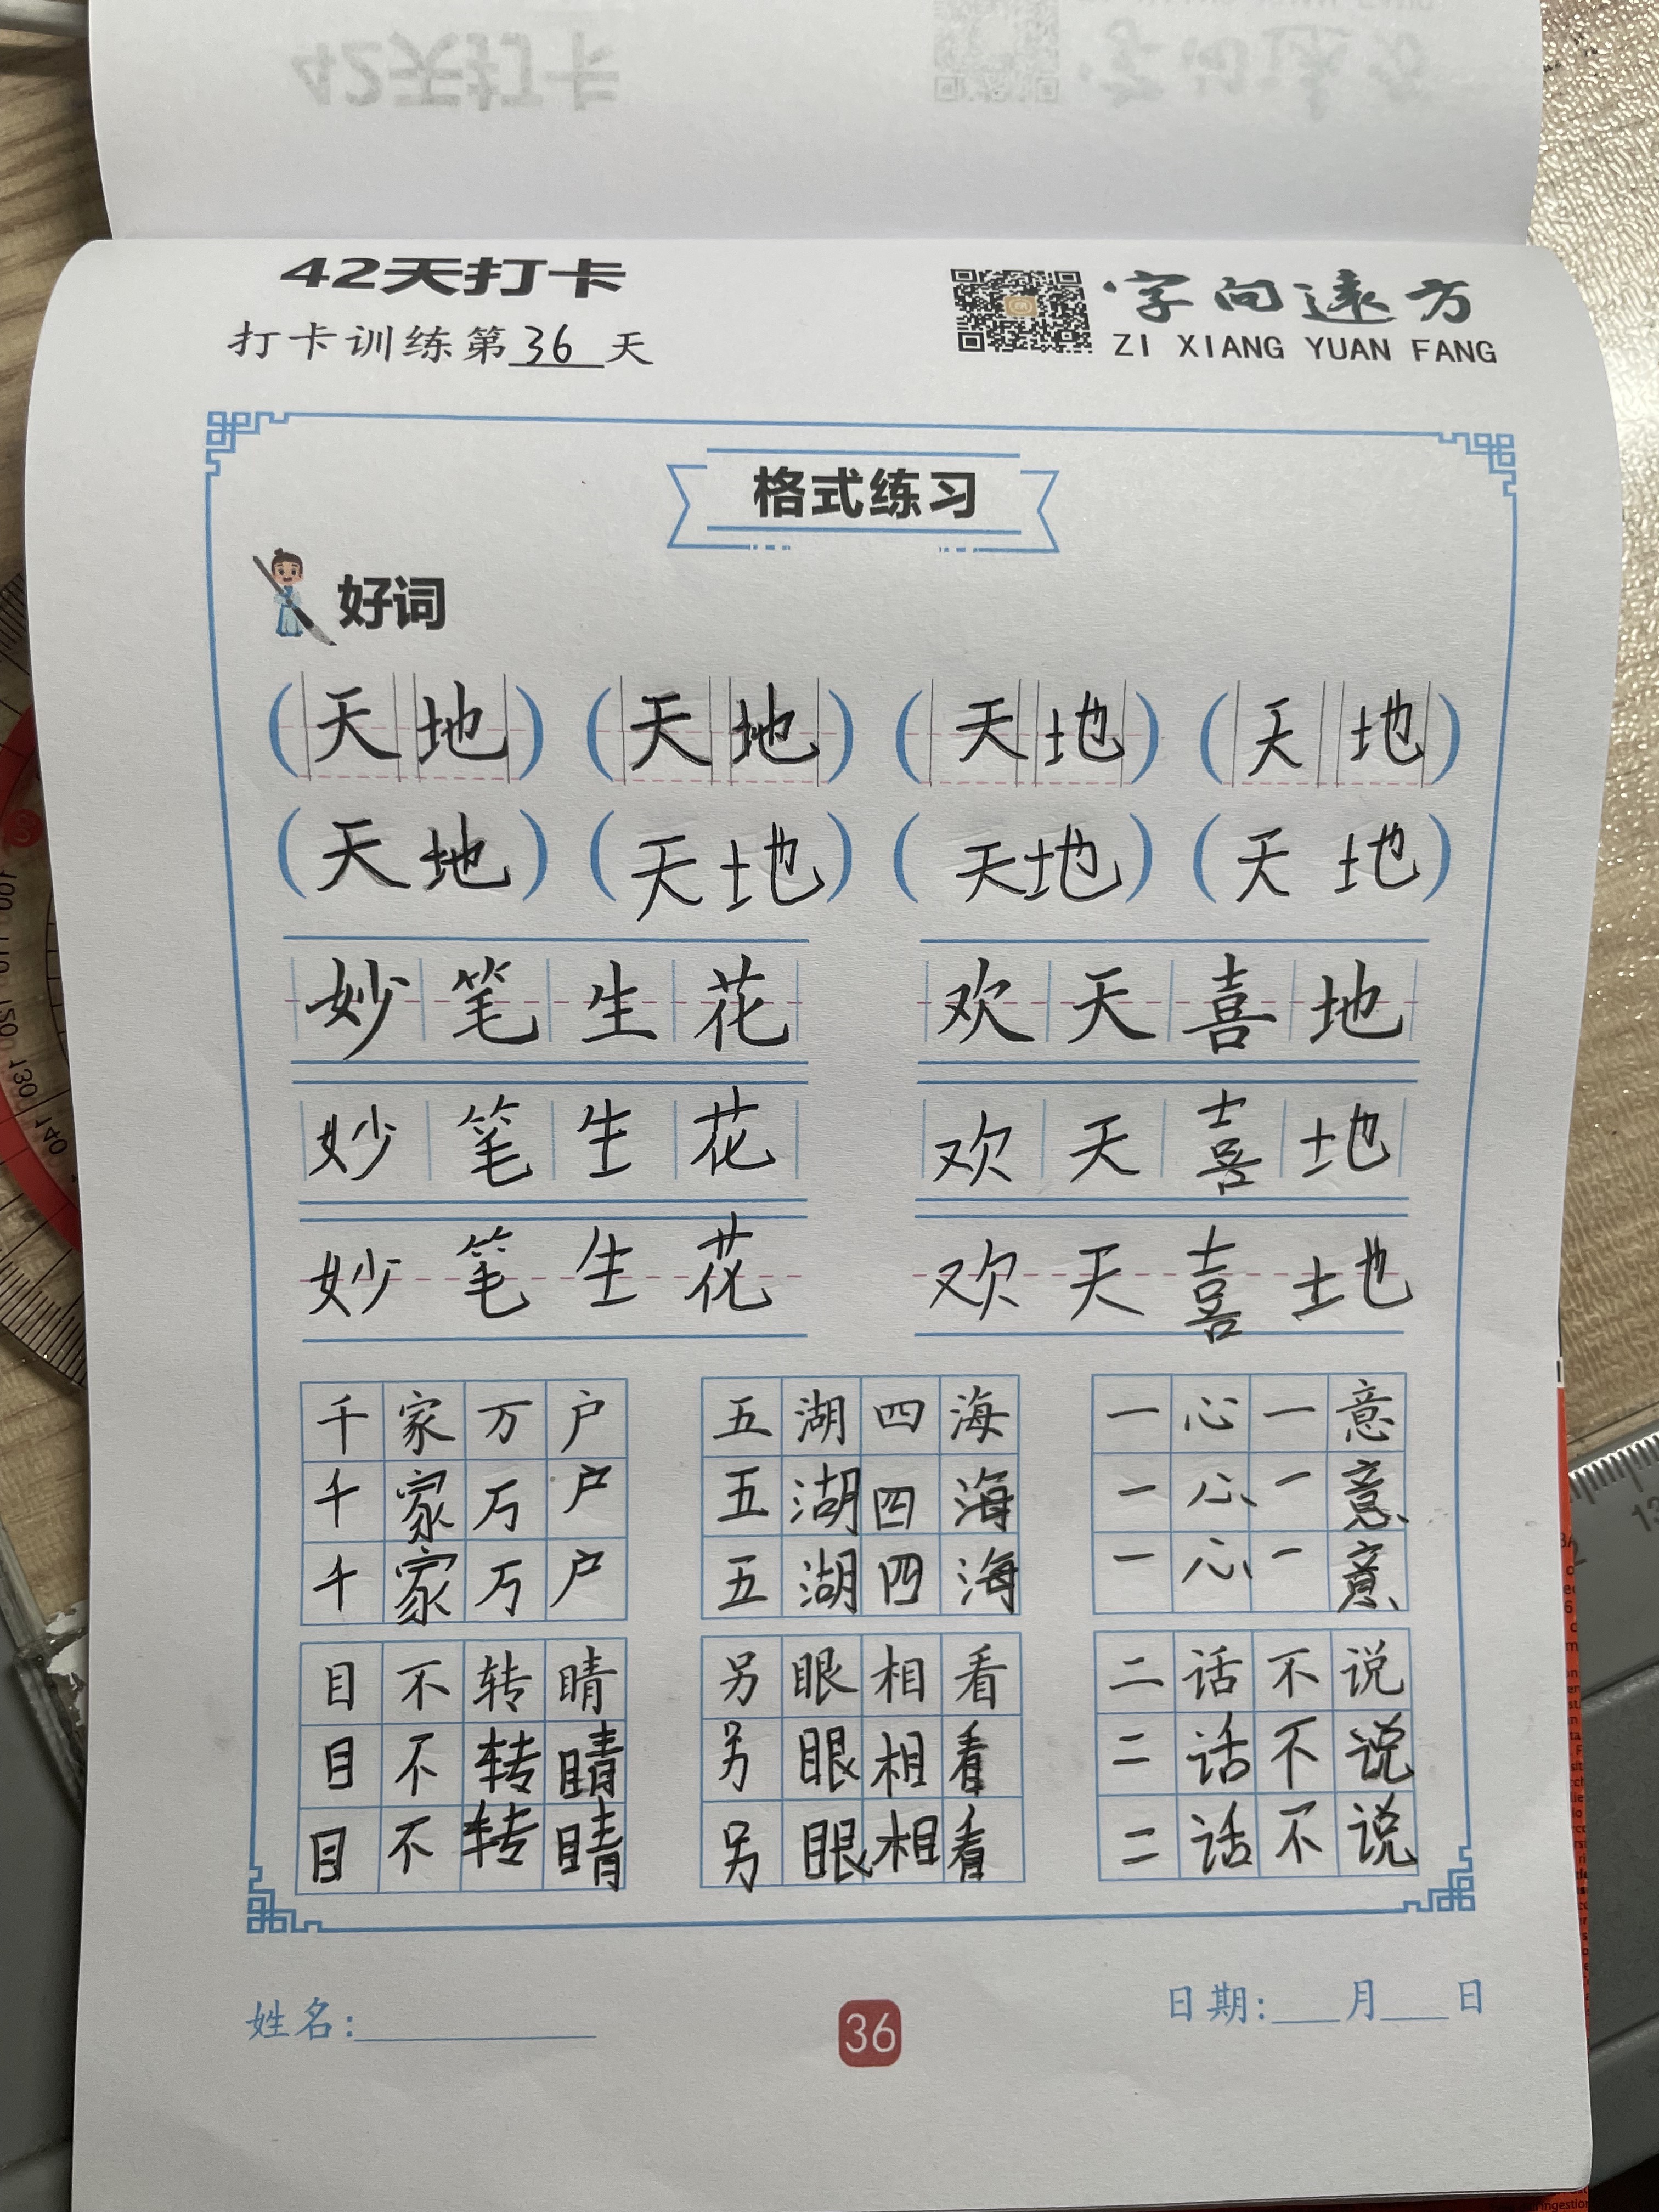 42天打卡
字向远方
ZI XIANG YUAN FANG
打卡训练第36天
格式练习
好词
(天地) (天地) (天地) (天地)
(天地) (天地) (天地) (天地)
妙笔生花 欢天喜地
妙笔生花 欢天喜地
妙笔生花 欢天喜地
千家万户 五湖四海 一心一意
千家万户 五湖四海 一心一意
千家万户 五湖四海 一心一意
目不转睛 另眼相看 二话不说
目不转睛 另眼相看 二话不说
目不转睛 另眼相看 二话不说
姓名:
36
日期: 月 日